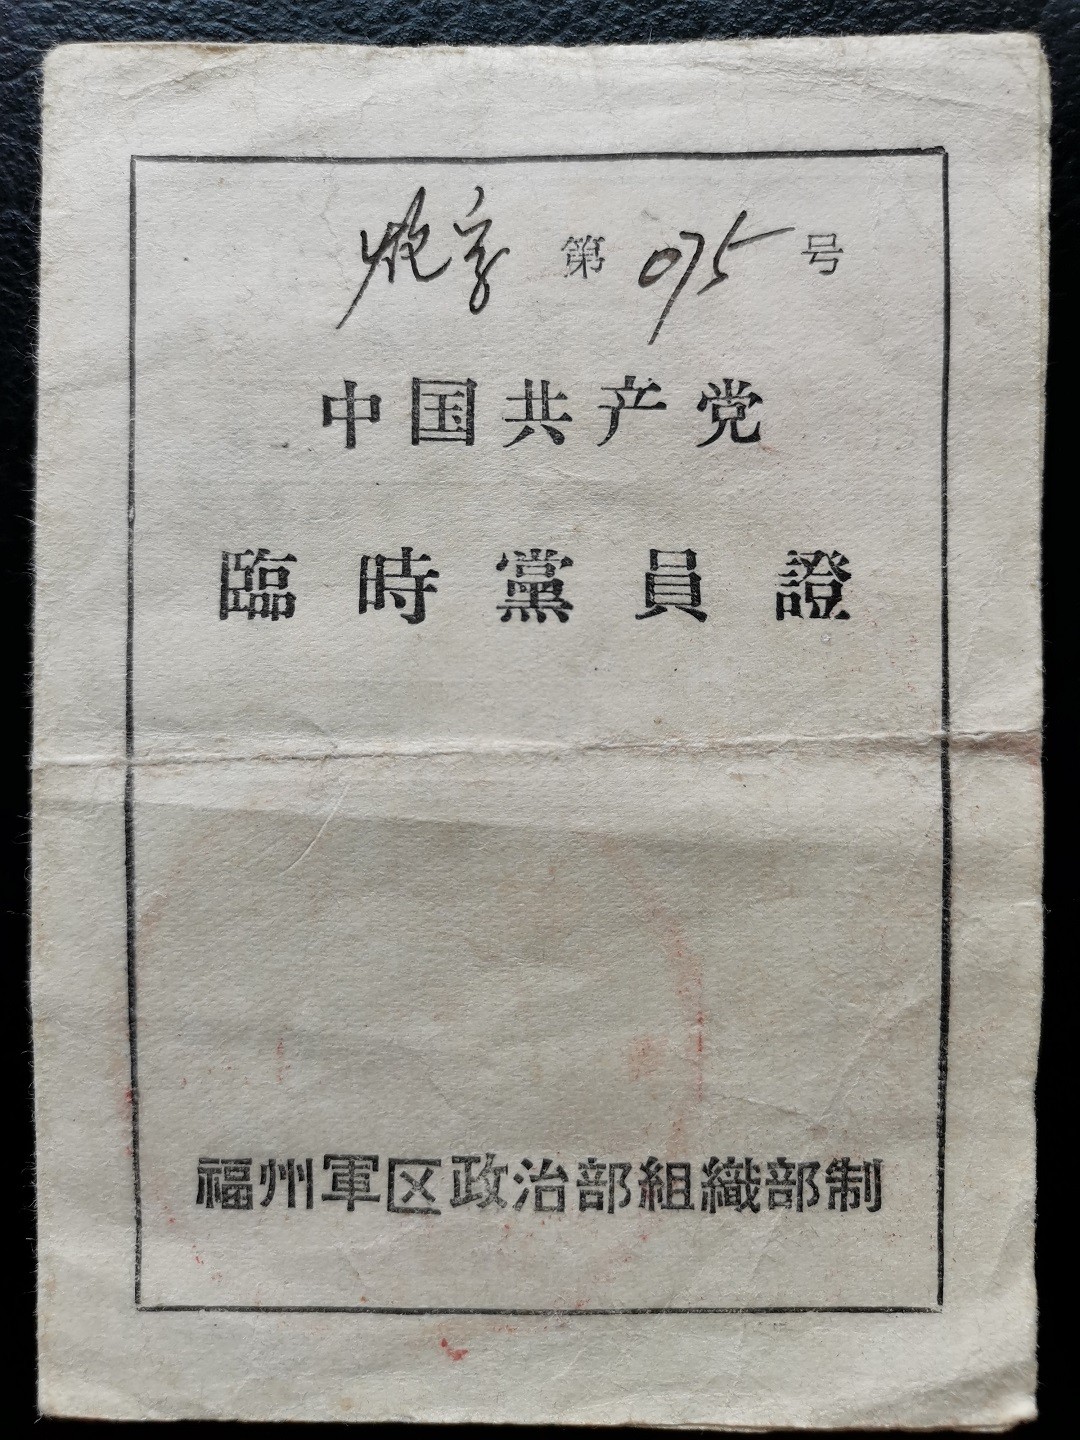 炮字 第 075 号
中国共产党
臨時黨員證
福州軍区政治部組織部制